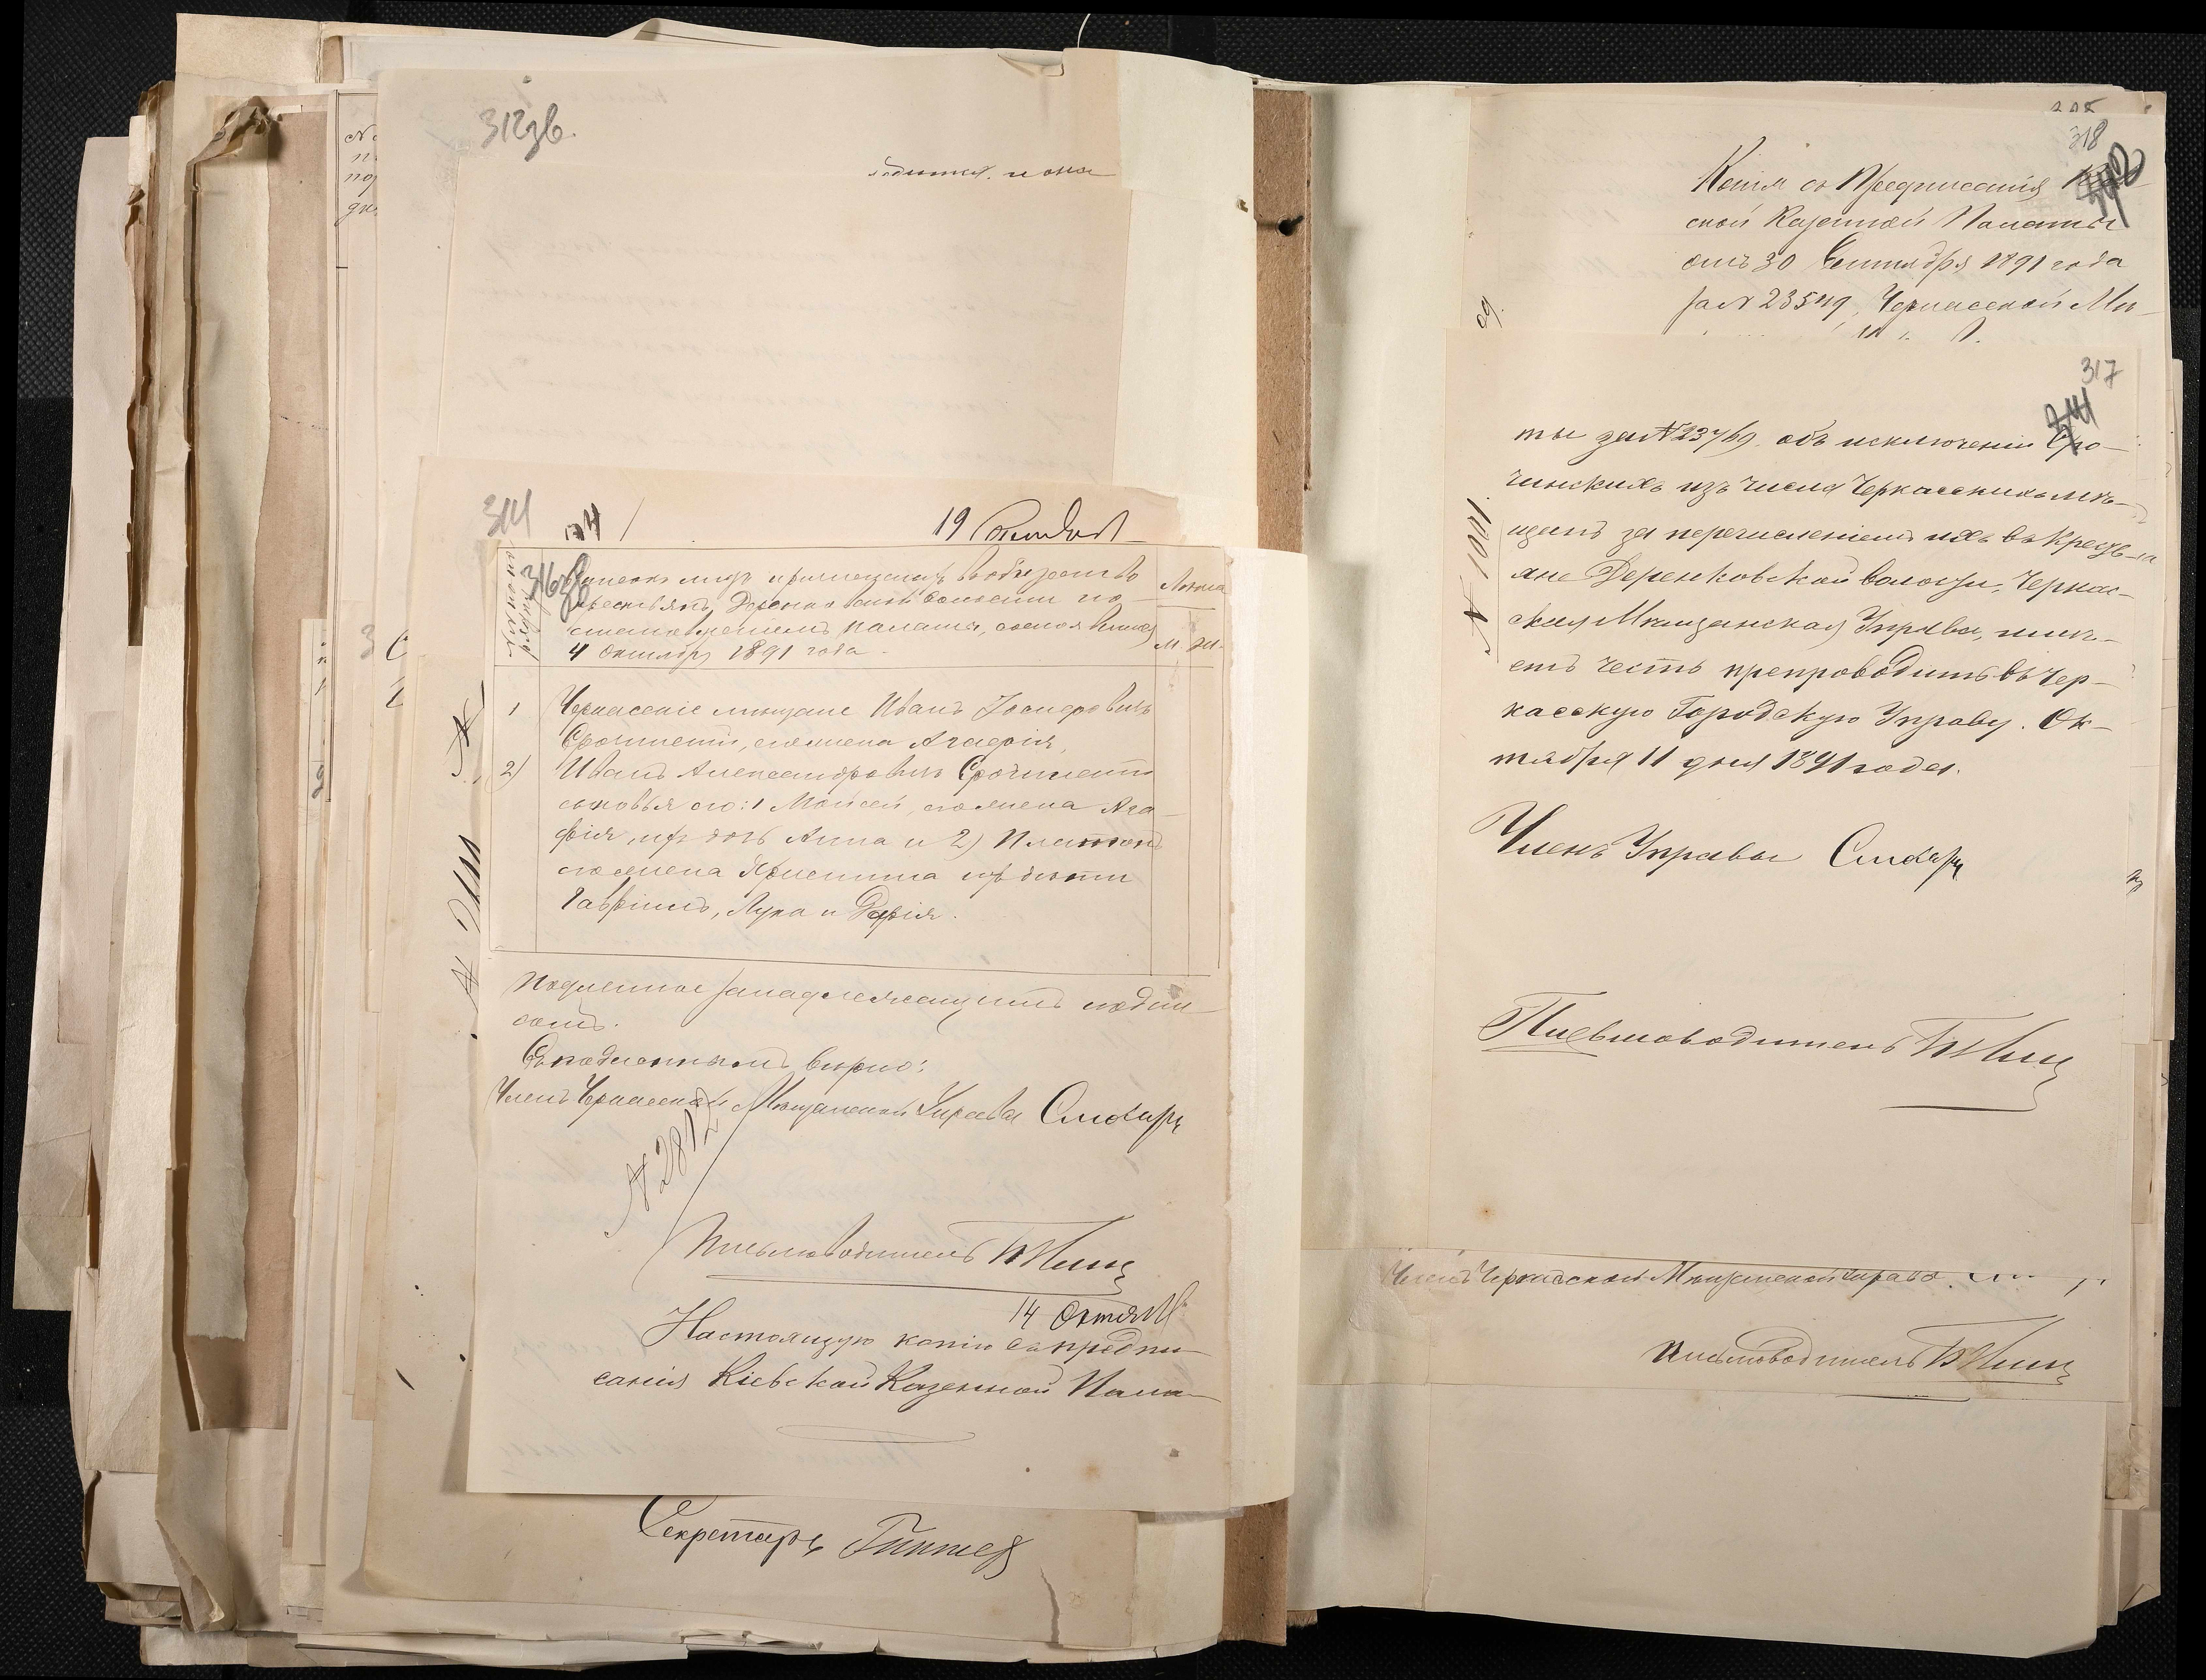 312 зв.
водится. и она
314
19 Октября
316 зв
Списокъ лицъ причисленныхъ въ общество
крестьянъ Деренковской волости по-
становленіемъ палаты, состоявшимся
4 Октября 1891 года.
М. Ж.
1 Черкасскіе мѣщане Иванъ Іосифовичъ
Срочинскій, его жена Агафія,
2) Иванъ Александровичъ Срочинскій
сыновья его: 1 Мойсей, его жена Ага-
фія, ихъ дочь Анна и 2) Платонъ
его жена Христина ихъ дѣти
Гавріилъ, Лука и Дарія.
Подленное за надлежащимъ подпи-
сомъ.
Съ подленнымъ вѣрно:
Членъ Черкасской Мѣщанской Управы Слюсарь
№ 2812
Письмоводитель
14 Октября
Настоящую копію съ предпи-
санія Кіевской Казенной Пала-
Секретарь
318
Копія съ Предписанія
ской Казенной Палаты
отъ 30 Сентября 1891 года
за № 23549, Черкасской Мѣ-
317
314
ты за № 23769 объ исключеніи Сро-
чинскихъ изъ числа Черкасскихъ мѣ-
щанъ за перечисленіемъ ихъ въ Кресть-
яне Деренковской волости, Черкас-
ская Мѣщанская Управа, имѣ-
етъ честь препроводить въ Чер-
касскую Городскую Управу. Ок-
тября 11 дня 1891 года.
№ 1001.
Членъ Управы Слюсарь
Письмоводитель
Членъ Черкасской Мѣщанской Управы
Письмоводитель